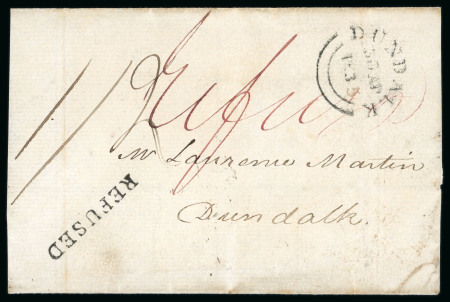 DUNDALK
Refused
Mr Laurence Martin
Dundalk.
REFUSED